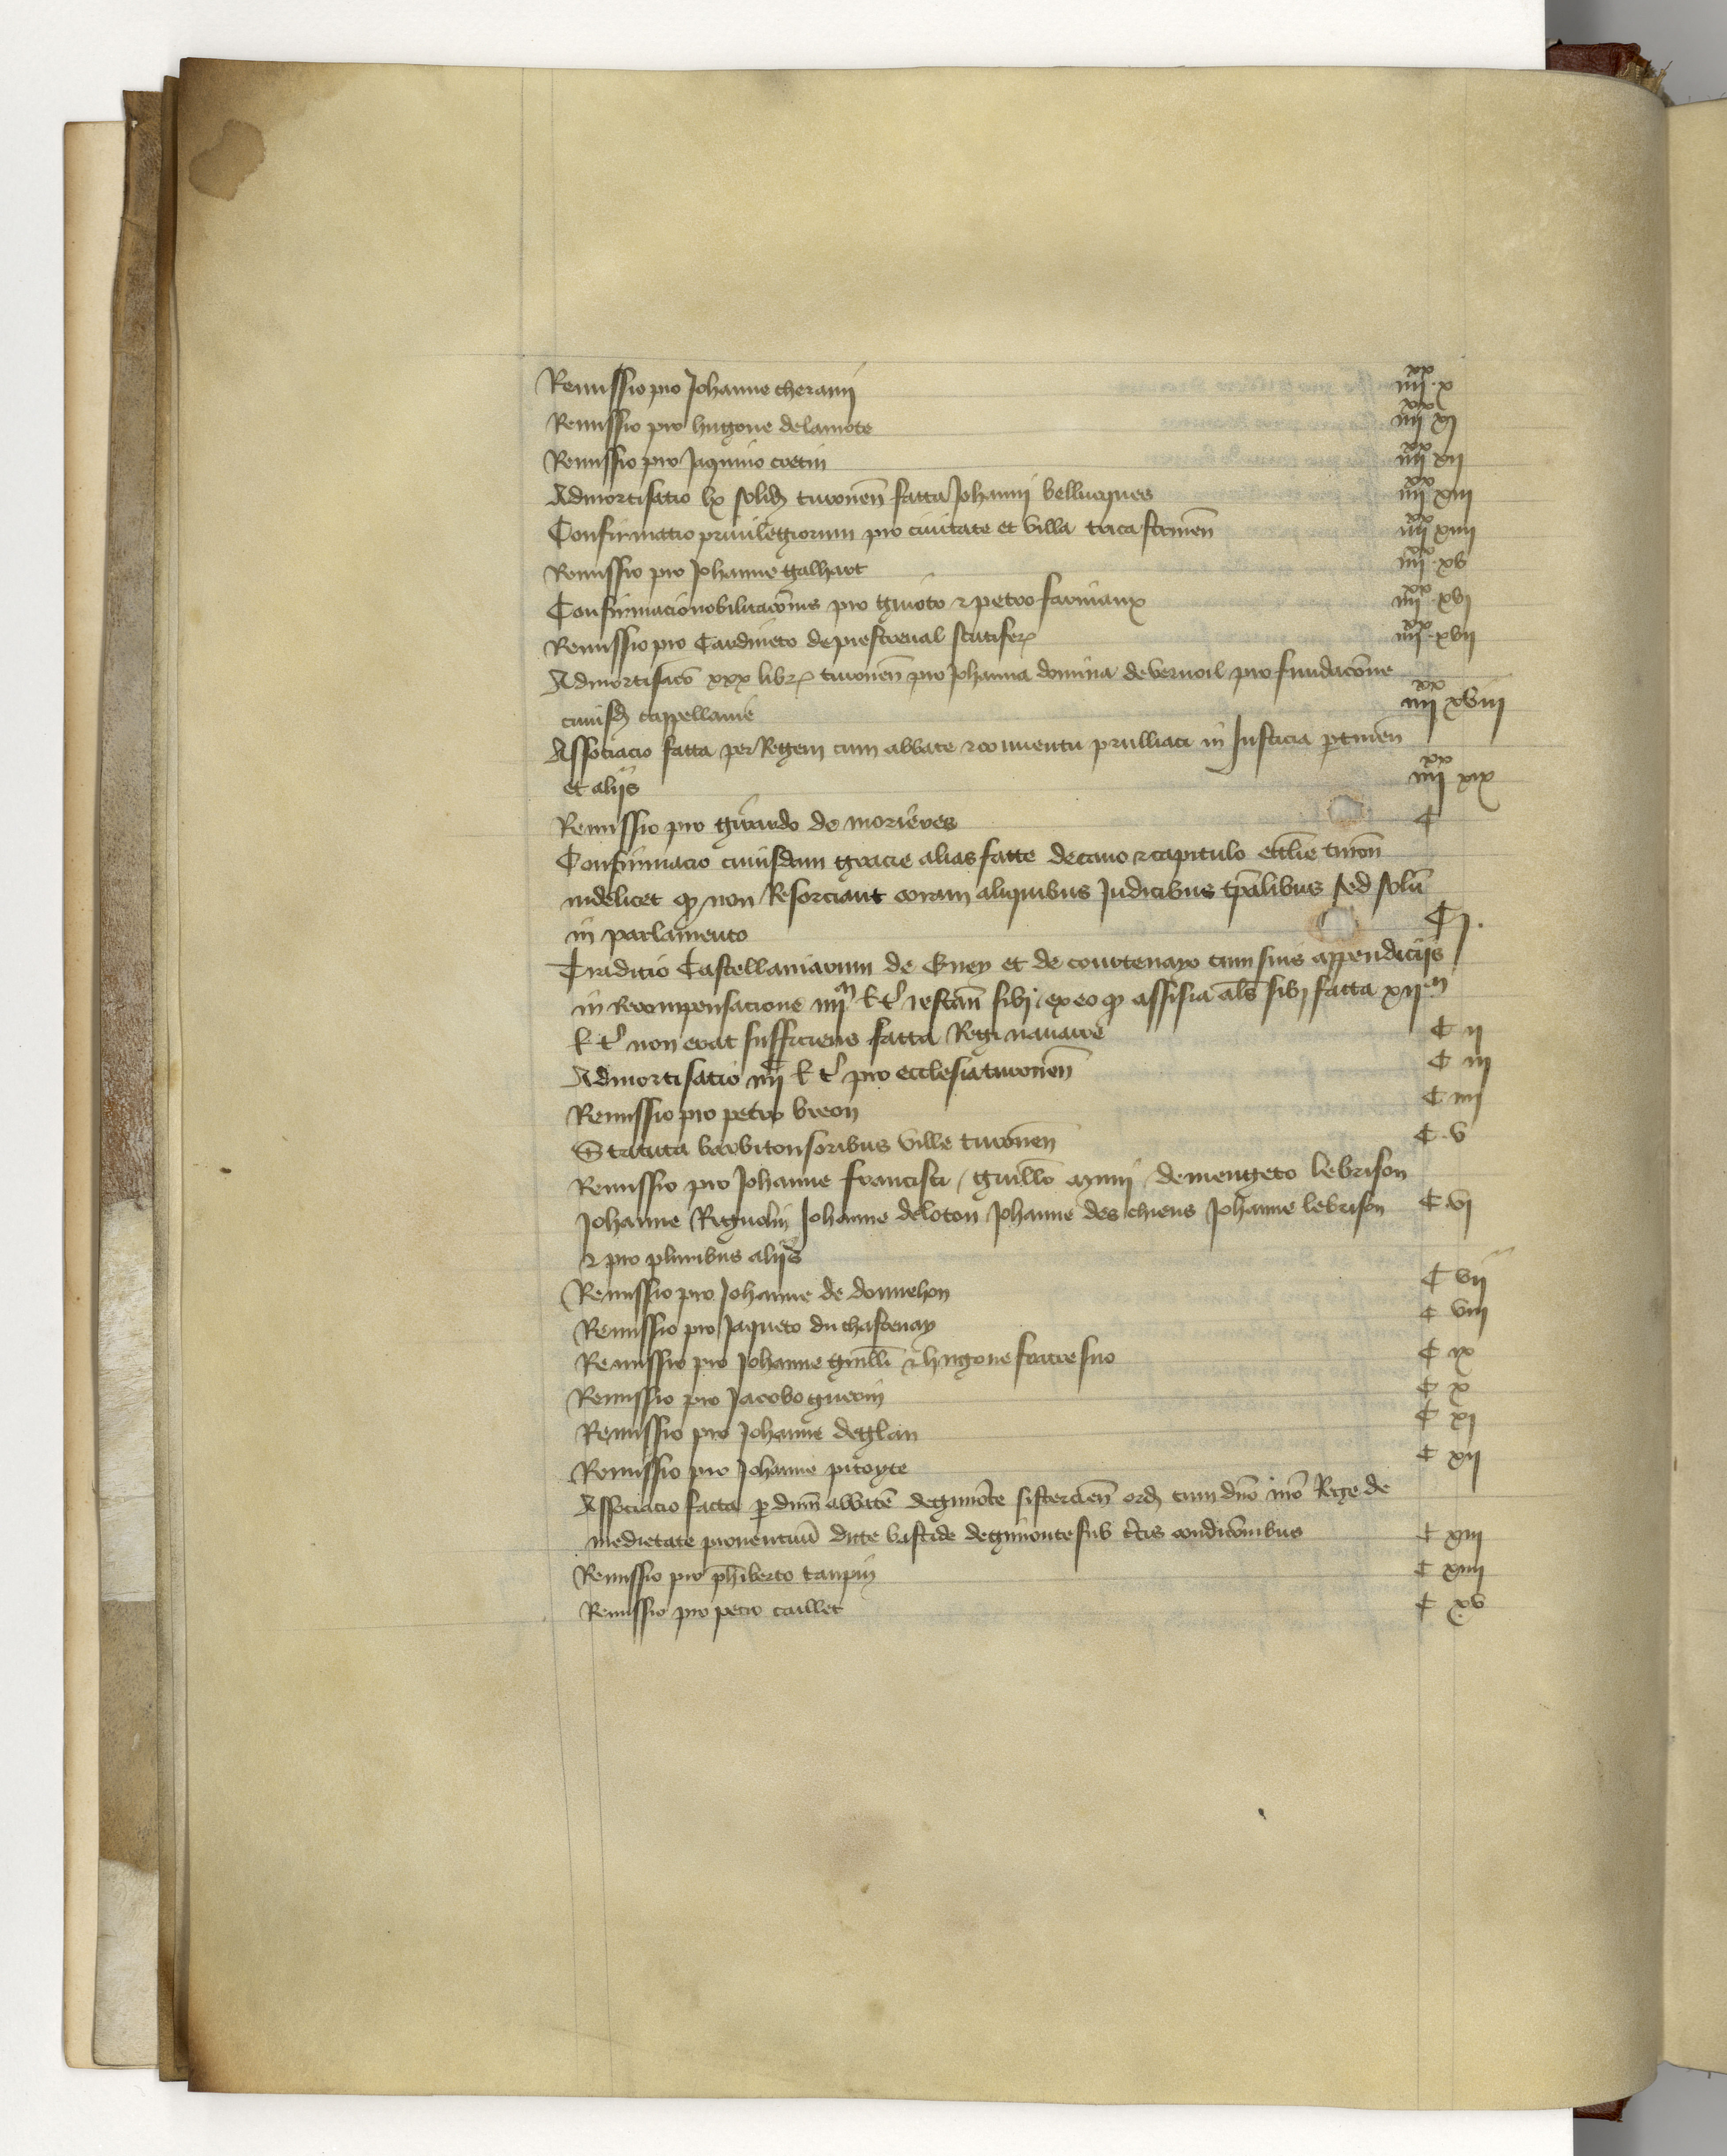 Remissio pro Johanne cheranii iiiixx x
Remissio pro hugone delamote iiiixx xi
Remissio pro Jaquino cretin iiiixx xii
Admortisatio lx solid turonen̄ facta Johanni belluques iiiixx xiii
Confirmatio priuilegiorum pro ciuitate et villa tricastrinen̄ iiiixx xiiii
Remissio pro Johanne galhart iiiixx xv
Confirmacio nobilitacōnis pro guioto ⁊ petro farinaux iiiixx xvi
Remissio pro Cardineto de prestreual scutifer iiiixx xvii
Admortisacō xxx libr turonen̄ pro Johanna domina de vernoil pro fundacōne
cuiusd cappellanie iiiixx xviii
Associacio facta per Regem cum abbate ⁊ conuentu prulliaci in Justicia ptinen̄
et aliis iiiixx xix
Remissio pro girardo de morieres C
Confirmacio cuiusdam gracie alias facte decano ⁊ capitulo ecclīe turon̄
videlicet ꝙ non Resorciant coram aliquibus Judicibus tp̄alibus sed solū
in parlamento Ci.
Traditio Castellaniarum de Gney et de courtenayo cum suis appendiciis
in Recompensacione iiiim l t restan̄ sibi ex eo ꝙ assisia al̄s sibi facta xiim
l t non erat sufficiens facta Regi nauarre C ii
Admortisatio iiiic l t pro ecclesia turonen̄ C iii
Remissio pro petro breon C iiii
Statuta barbitonsoribus ville turonen̄ C v
Remissio pro Johanne francisci / guillō aynii / demengeto lebrison
Johanne Regnolin Johanne deloton Johanne des chiens Johanne lebrison C vi
⁊ pro pluribus aliis
Remissio pro Johanne de donnehon C vii
Remissio pro Jaqueto du chastenay C viii
Remissio pro Johanne guillī ⁊ hugone fratre suo C ix
Remissio pro Jacobo guerin C x
Remissio pro Johanne deglan C xi
Remissio pro Johanne pitoyte C xii
Associacio facta p dnm̄ abbatē degimōte sistercien̄ ord cum dnō nrō Rege de
medietate prouentuū dicte bastide degimonte sub c̄tis condicōnibus C xiii
Remissio pro ph̄iberto taupin C xiiii
Remissio pro petro caillet C xv